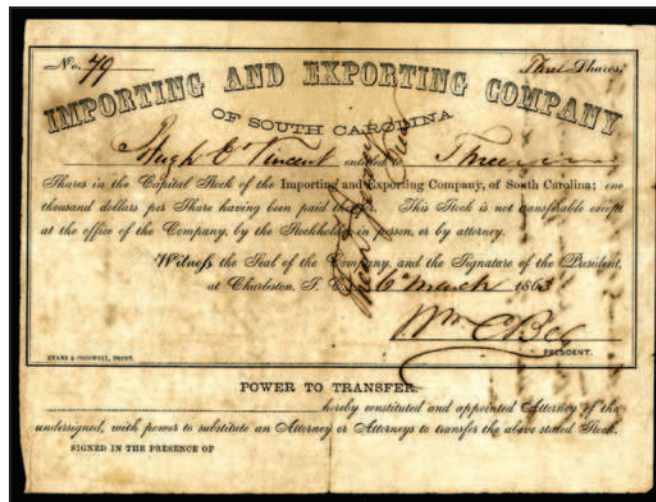 No. 79 Three Shares.
IMPORTING AND EXPORTING COMPANY
OF SOUTH CAROLINA
Hugh E. Vincent entitled to Three
Shares in the Capital Stock of the Importing and Exporting Company, of South Carolina; one
thousand dollars per Share having been paid therefor. This Stock is not transferable except
at the office of the Company, by the Stockholder in person, or by attorney.
Witness the Seal of the Company, and the Signature of the President,
at Charleston, S. C. 6 March 1863
Wm C Bee
PRESIDENT.
EVANS & COGSWELL, PRINT.
POWER TO TRANSFER.
hereby constituted and appointed Attorney of the
undersigned, with power to substitute an Attorney or Attorneys to transfer the above stated Stock.
SIGNED IN THE PRESENCE OF